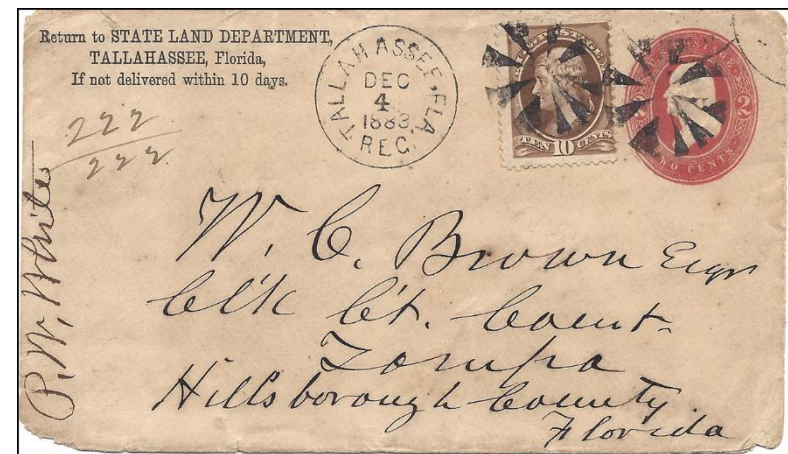 Return to STATE LAND DEPARTMENT,
TALLAHASSEE, Florida,
If not delivered within 10 days.
TALLAHASSEE, FLA.
DEC
4
1883
REC.
TEN 10 CENTS
2
TWO CENTS
222
222
P. W. White
W. C. Brown Esqr
Cl'k C't. Court
Tampa
Hillsborough County
Florida